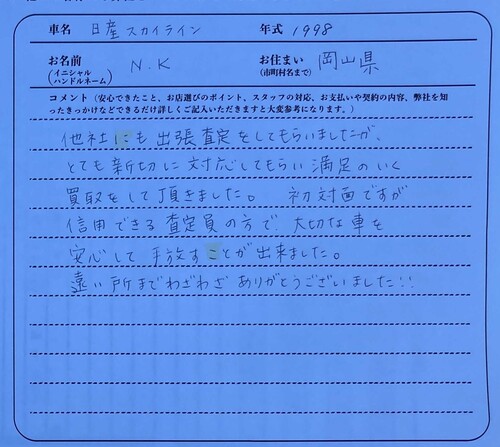 車名 日産スカイライン 年式 1998
お名前 (イニシャル ハンドルネーム) N.K お住まい (市町村名まで) 岡山県
コメント（安心できたこと、お店選びのポイント、スタッフの対応、お支払いや契約の内容、弊社を知
ったきっかけなどできるだけ詳しくご記入いただきますと大変参考になります。）
他社にも出張査定をしてもらいましたが、
とても新切に対応してもらい満足のいく
買取をして頂きました。 初対面ですが
信用できる査定員の方で、大切な車を
安心して手放すことが出来ました。
遠い所までわざわざありがとうございました!!